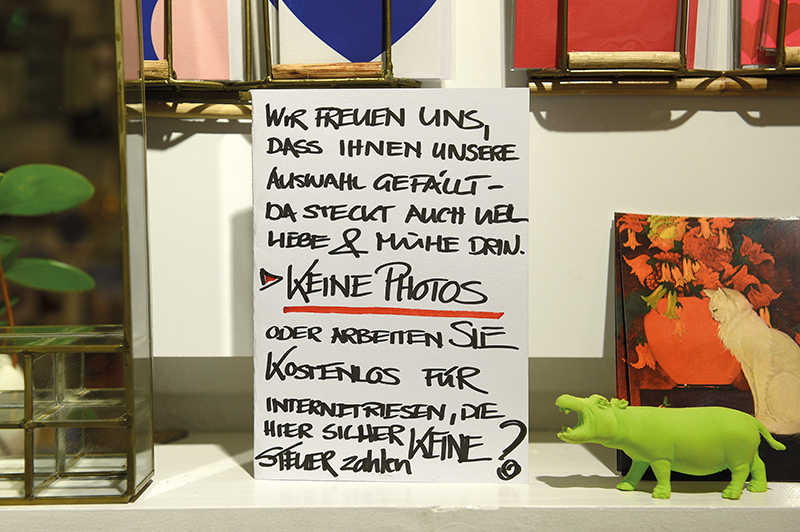 WIR FREUEN UNS,
DASS IHNEN UNSERE
AUSWAHL GEFÄLLT –
DA STECKT AUCH VIEL
LIEBE & MÜHE DRIN.
KEINE PHOTOS
ODER ARBEITEN SIE
KOSTENLOS FÜR
INTERNETRIESEN, DIE
HIER SICHER KEINE
STEUER zahlen?